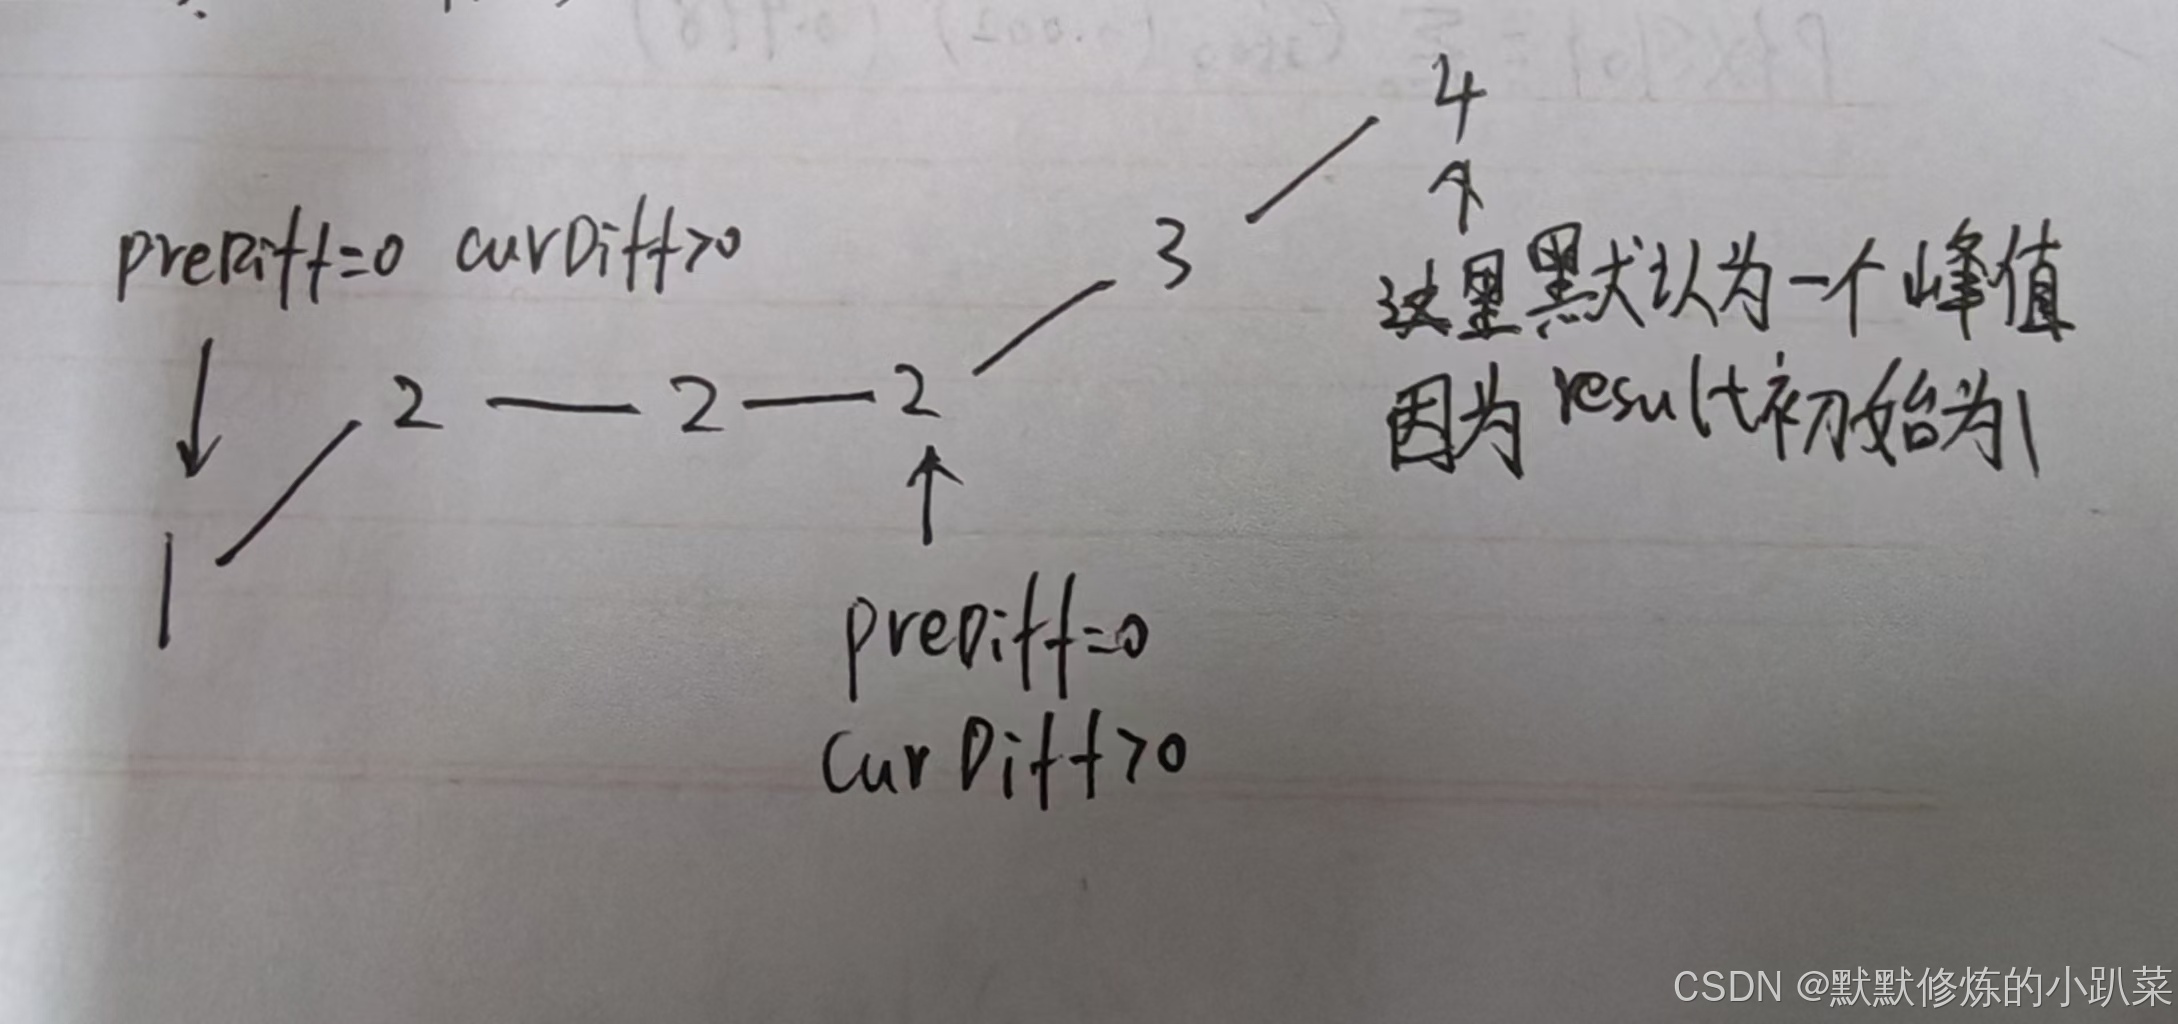 4
preDiff=0 curDiff>0
3
这里默认为一个峰值
因为result初始为1
2 — 2 — 2
1
preDiff=0
curDiff>0
CSDN @默默修炼的小趴菜